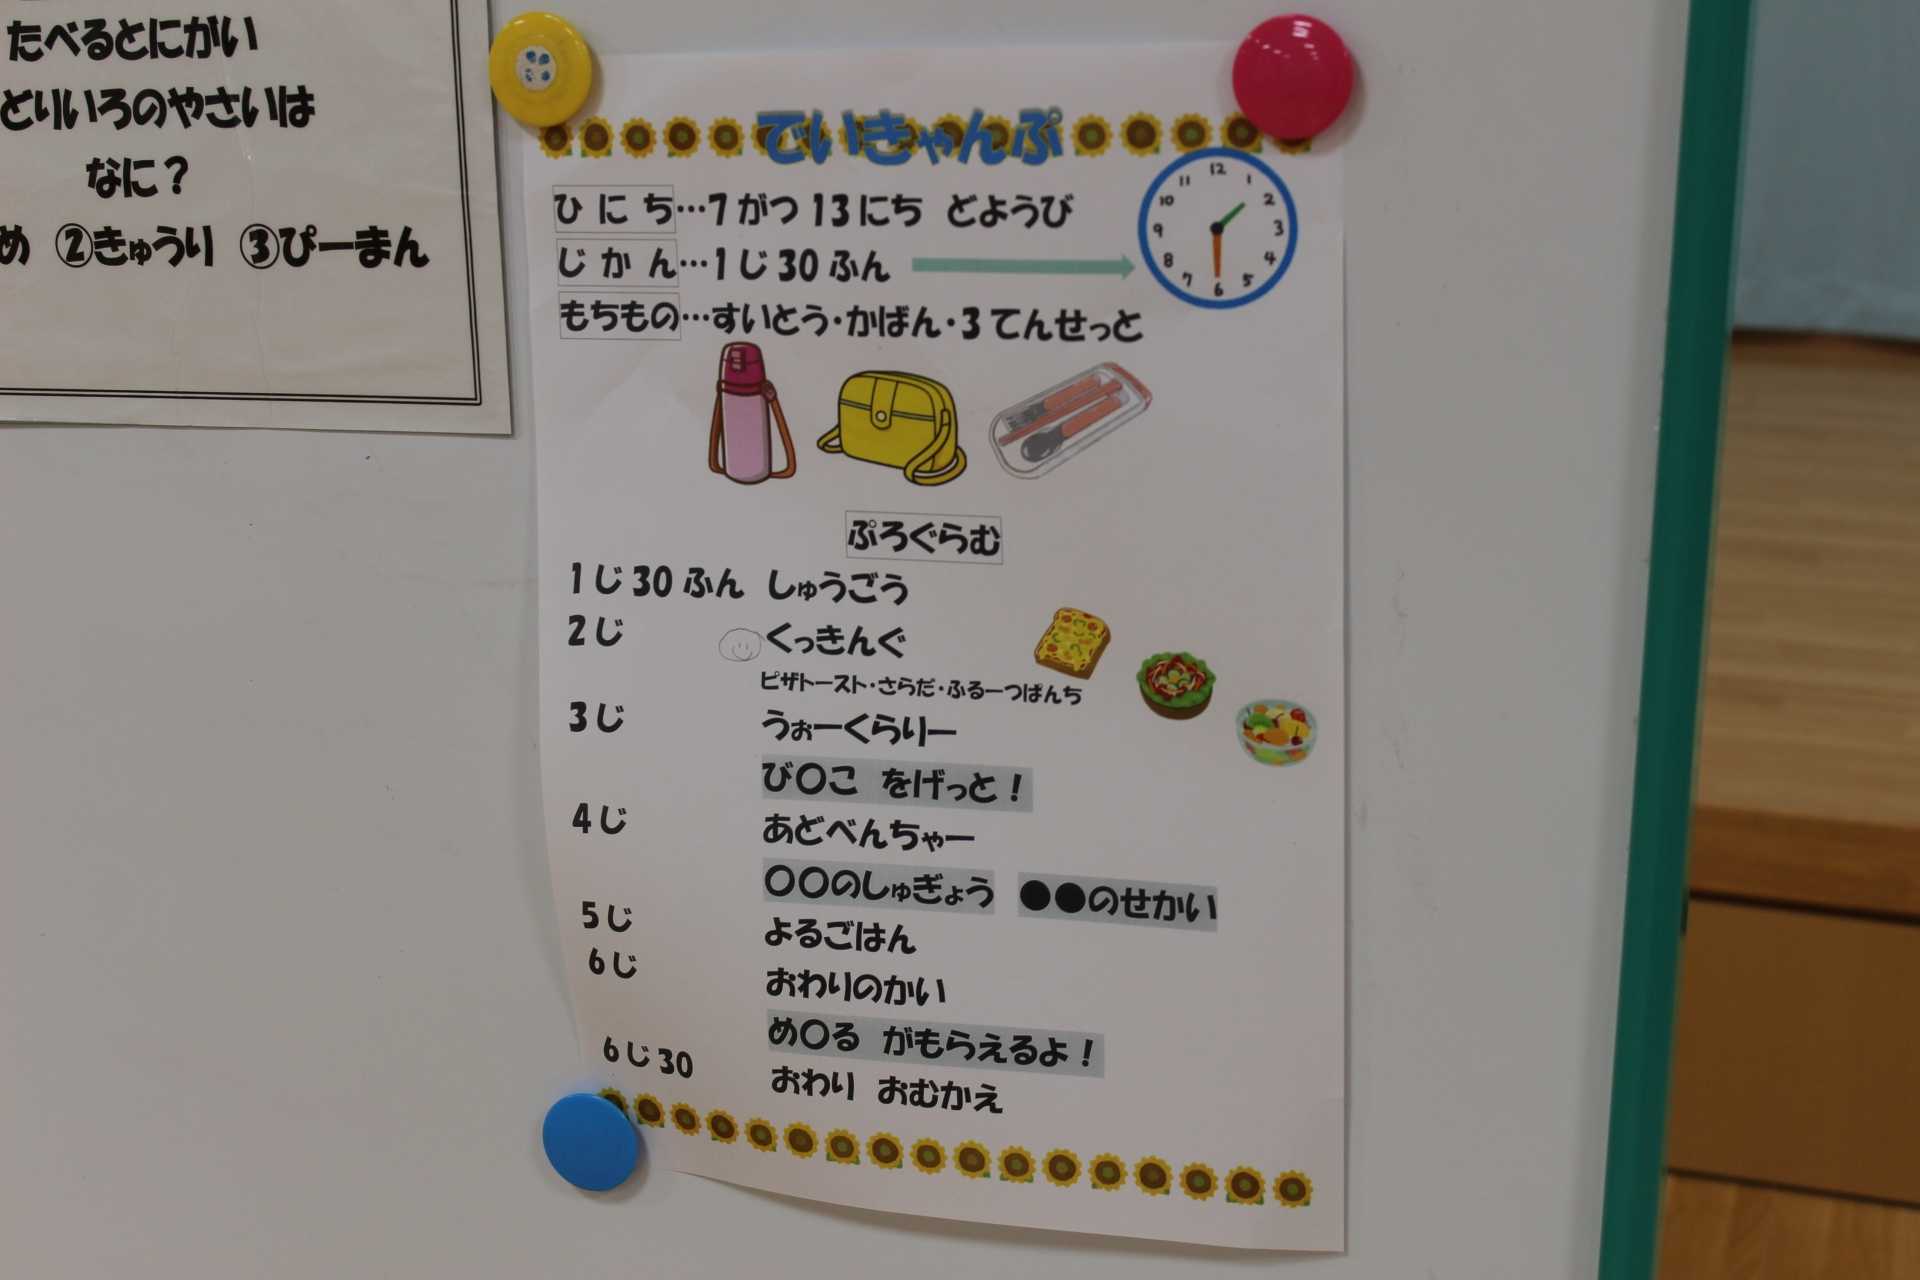 たべるとにがい
どりいろのやさいは
なに？
め ②きゅうり ③ぴーまん
でいきゃんぷ
ひにち…7がつ13にち どようび
じかん…1じ30ふん
もちもの…すいとう・かばん・3てんせっと
12
11 1
10 2
9 3
8 4
7 5
6
ぷろぐらむ
1じ30ふん しゅうごう
2じ くっきんぐ
ピザトースト・さらだ・ふるーつぱんち
3じ うぉーくらりー
び〇こ をげっと！
4じ あどべんちゃー
〇〇のしゅぎょう ●●のせかい
5じ よるごはん
6じ おわりのかい
め〇る がもらえるよ！
6じ30 おわり おむかえ